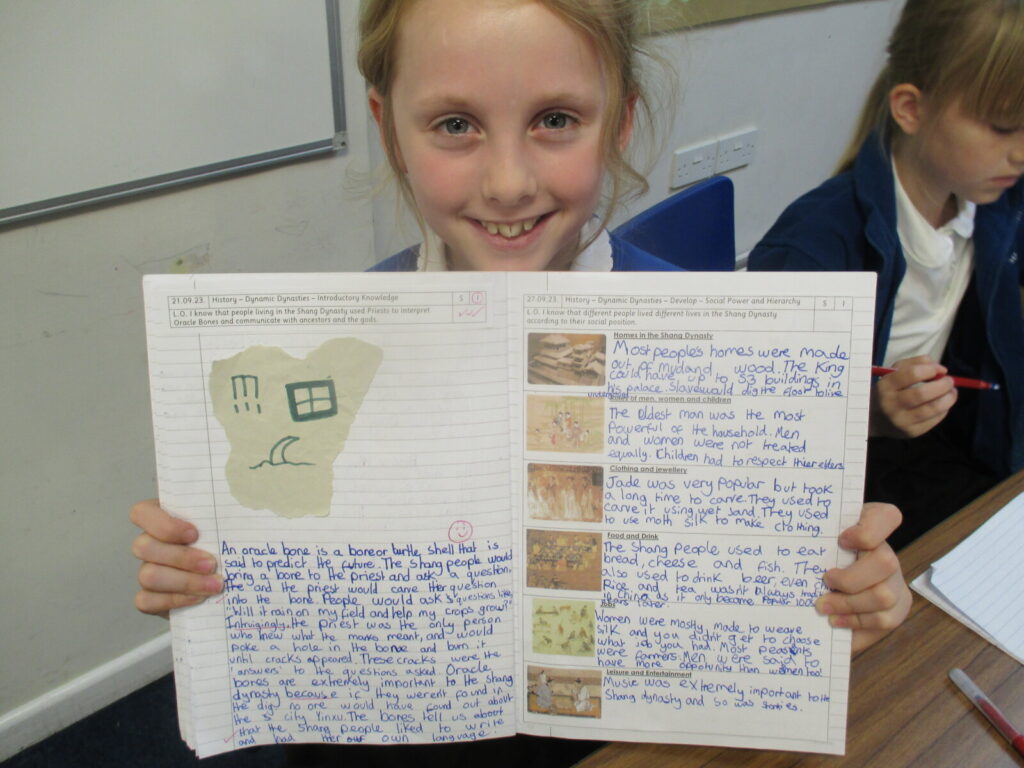 21.09.23. History – Dynamic Dynasties – Introductory Knowledge S I
L.O. I know that people living in the Shang Dynasty used Priests to interpret
Oracle Bones and communicate with ancestors and the gods.
An oracle bone is a bone or turtle shell that is
said to predict the future. The Shang people would
bring a bone to the priest and ask a question,
The and the priest would carve ther question
into the bone. People would ask questions like,
"Will it rain on my field and help my crops grow?"
Intruigingly, the priest was the only person
who knew what the marks meant, and would
poke a hole in the bone and burn it
until cracks appeared. These cracks were the
"answers" to the questions asked. Oracle
bones are extremely important to the Shang
dynasty because if they weren't found in
the dig no one would have found out about
the city Yinxu. The bones tell us about
that the Shang people liked to write
and had their own language.
27.09.23. History – Dynamic Dynasties – Develop – Social Power and Hierarchy S I
L.O. I know that different people lived different lives in the Shang Dynasty
according to their social position.
Homes in the Shang Dynasty
Most peoples homes were made
out of mud and wood. The King
could have up to 53 buildings in
his palace. Slaves would dig the floor to live
underneath
of men, women and children
The oldest man was the most
powerful of the household. Men
and women were not treated
equally. Children had to respect their elders
Clothing and jewellery
Jade was very popular but took
a long time to carve. They used to
carve it using wet sand. They used
to use moth silk to make clothing.
Food and Drink
The Shang people used to eat
bread, cheese and fish. They
also used to drink beer, even
Rice and tea wasn't always
in China as it only became popular
years later.
Jobs
Women were mostly made to weave
silk and you didn't get to choose
what job you had. Most peasents
were farmers. Men were said to
have more opportunity than women too!
Leisure and Entertainment
Music was extremely important to the
Shang dynasty and so was stories.